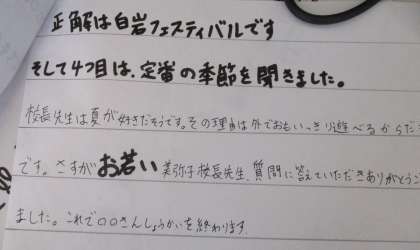 正解は白岩フェスティバルです
そして4つ目は、定番の季節を聞きました。
校長先生は夏が好きだそうです。その理由は外でおもいっきり遊べるからだ
です。さすがお若い美弥子校長先生、質問に答えていただきありがとうご
ました。これで〇〇さんしょうかいを終わります